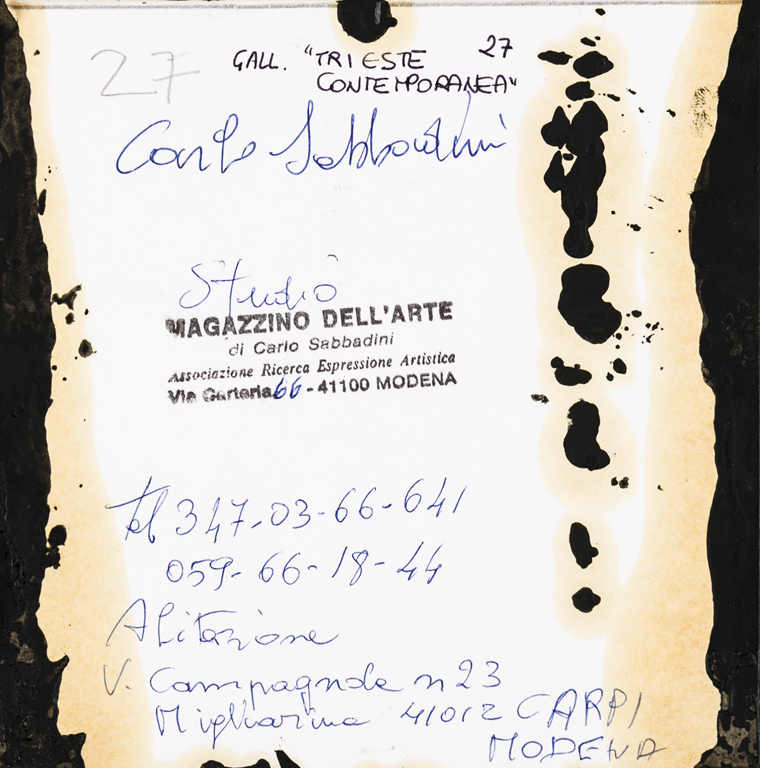 27 GALL. "TRIESTE 27
CONTEMPORANEA"
Carlo Sabbadini
Studio
MAGAZZINO DELL'ARTE
di Carlo Sabbadini
Associazione Ricerca Espressione Artistica
Via Carteria 66 - 41100 MODENA
Tel 347-03-66-641
059-66-18-44
Abitazione
V. Campagnola n 23
Migliarina 41012 CARPI
MODENA